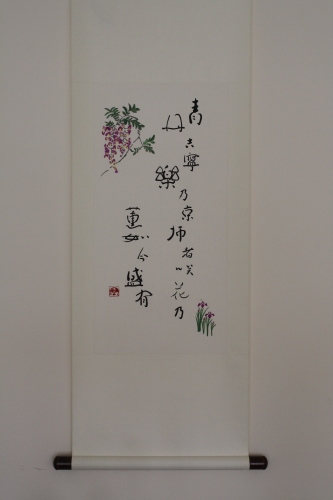 青丹吉寧樂乃京師者咲花乃
薫如今盛有